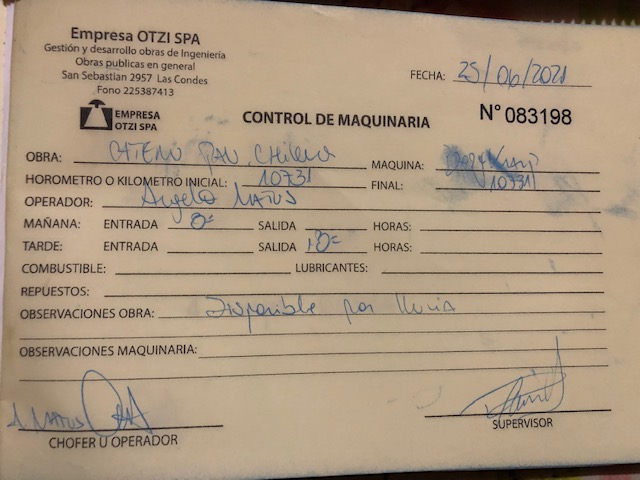 Empresa OTZI SPA
Gestión y desarrollo obras de Ingeniería
Obras publicas en general
San Sebastián 2957 Las Condes
Fono 225387413
FECHA: 25/06/2021
EMPRESA
OTZI SPA
CONTROL DE MAQUINARIA
N° 083198
OBRA: Chilena MAQUINA:
HOROMETRO O KILOMETRO INICIAL: 10731 FINAL: 10731
OPERADOR: Angelo Matus
MAÑANA: ENTRADA 8º SALIDA HORAS:
TARDE: ENTRADA SALIDA 18º HORAS:
COMBUSTIBLE: LUBRICANTES:
REPUESTOS:
OBSERVACIONES OBRA: Disponible por lluvia
OBSERVACIONES MAQUINARIA:
A Matus
CHOFER U OPERADOR
SUPERVISOR